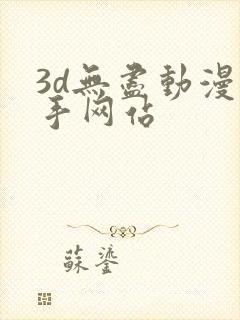 3d無盡動漫
手网佔
蘇鎏